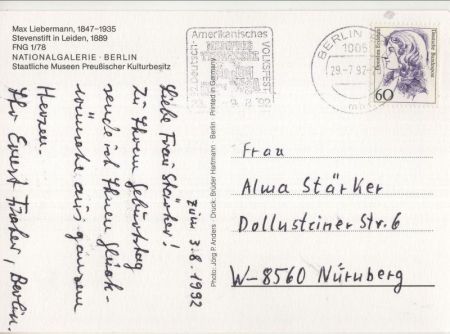 Max Liebermann, 1847–1935
Stevenstift in Leiden, 1889
FNG 1/78
NATIONALGALERIE · BERLIN
Staatliche Museen Preußischer Kulturbesitz
Amerikanisches
VOLKSFEST
BERLIN
1005
29.-7.92
60
Dorothea Erxleben
Deutsche Bundespost
Photo: Jörg P. Anders Druck: Brüder Hartmann Berlin Printed in Germany
zum 3.8.1992
Liebe Frau Stärker!
Zu Ihrem Geburtstag
sende ich Ihnen Glück-
wünsche aus ganzem
Herzen.
Ihr Ernst Froher, Berlin.
Frau
Alma Stärker
Dollnsteiner Str. 6
W-8560 Nürnberg